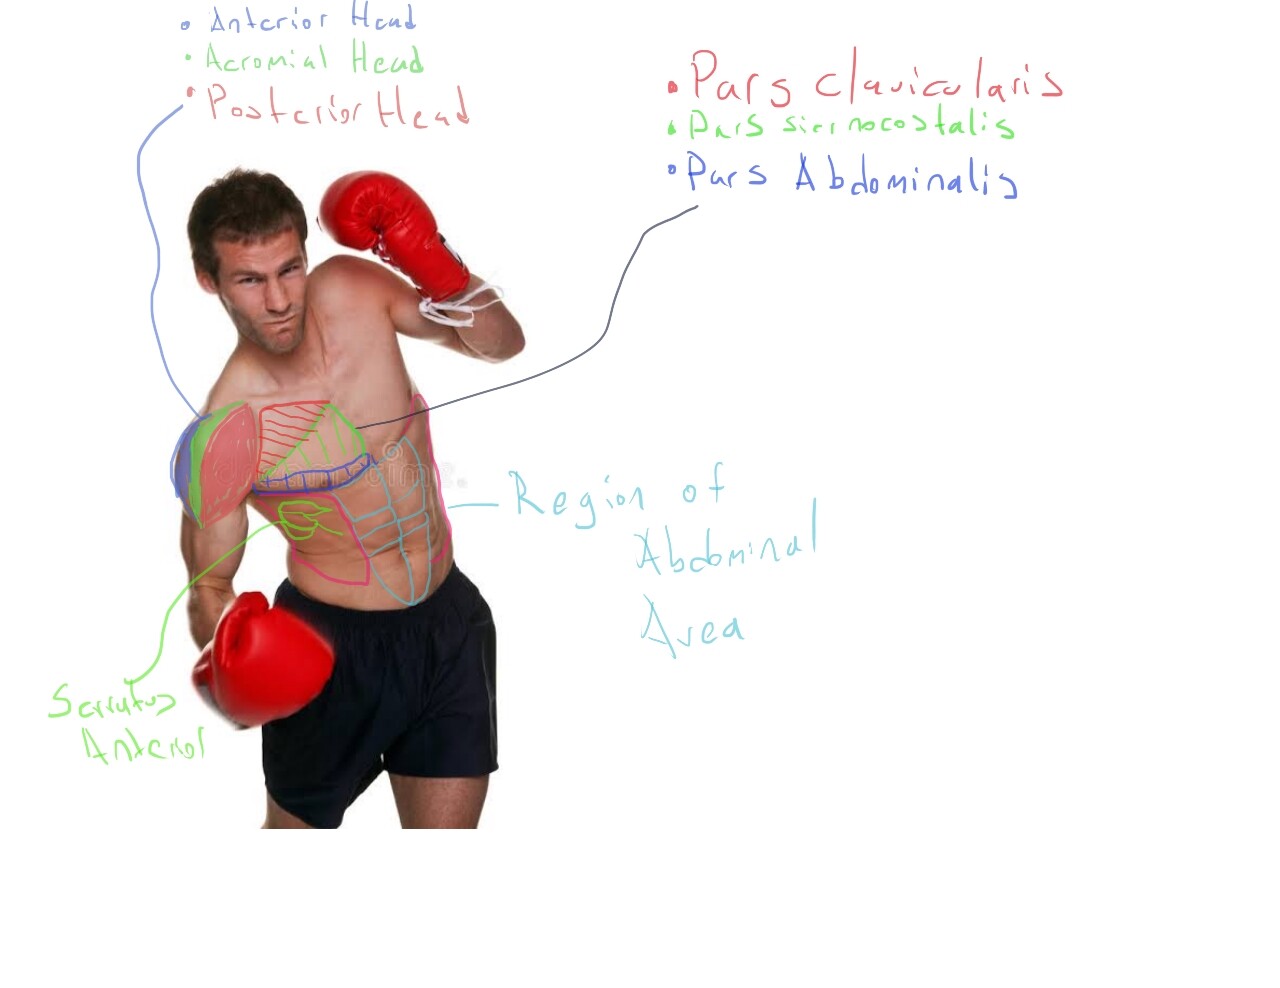 • Anterior Head
• Acromial Head
• Posterior Head
• Pars clavicularis
• Pars sternocostalis
• Pars Abdominalis
Region of
Abdominal
Area
Serratus
Anterior